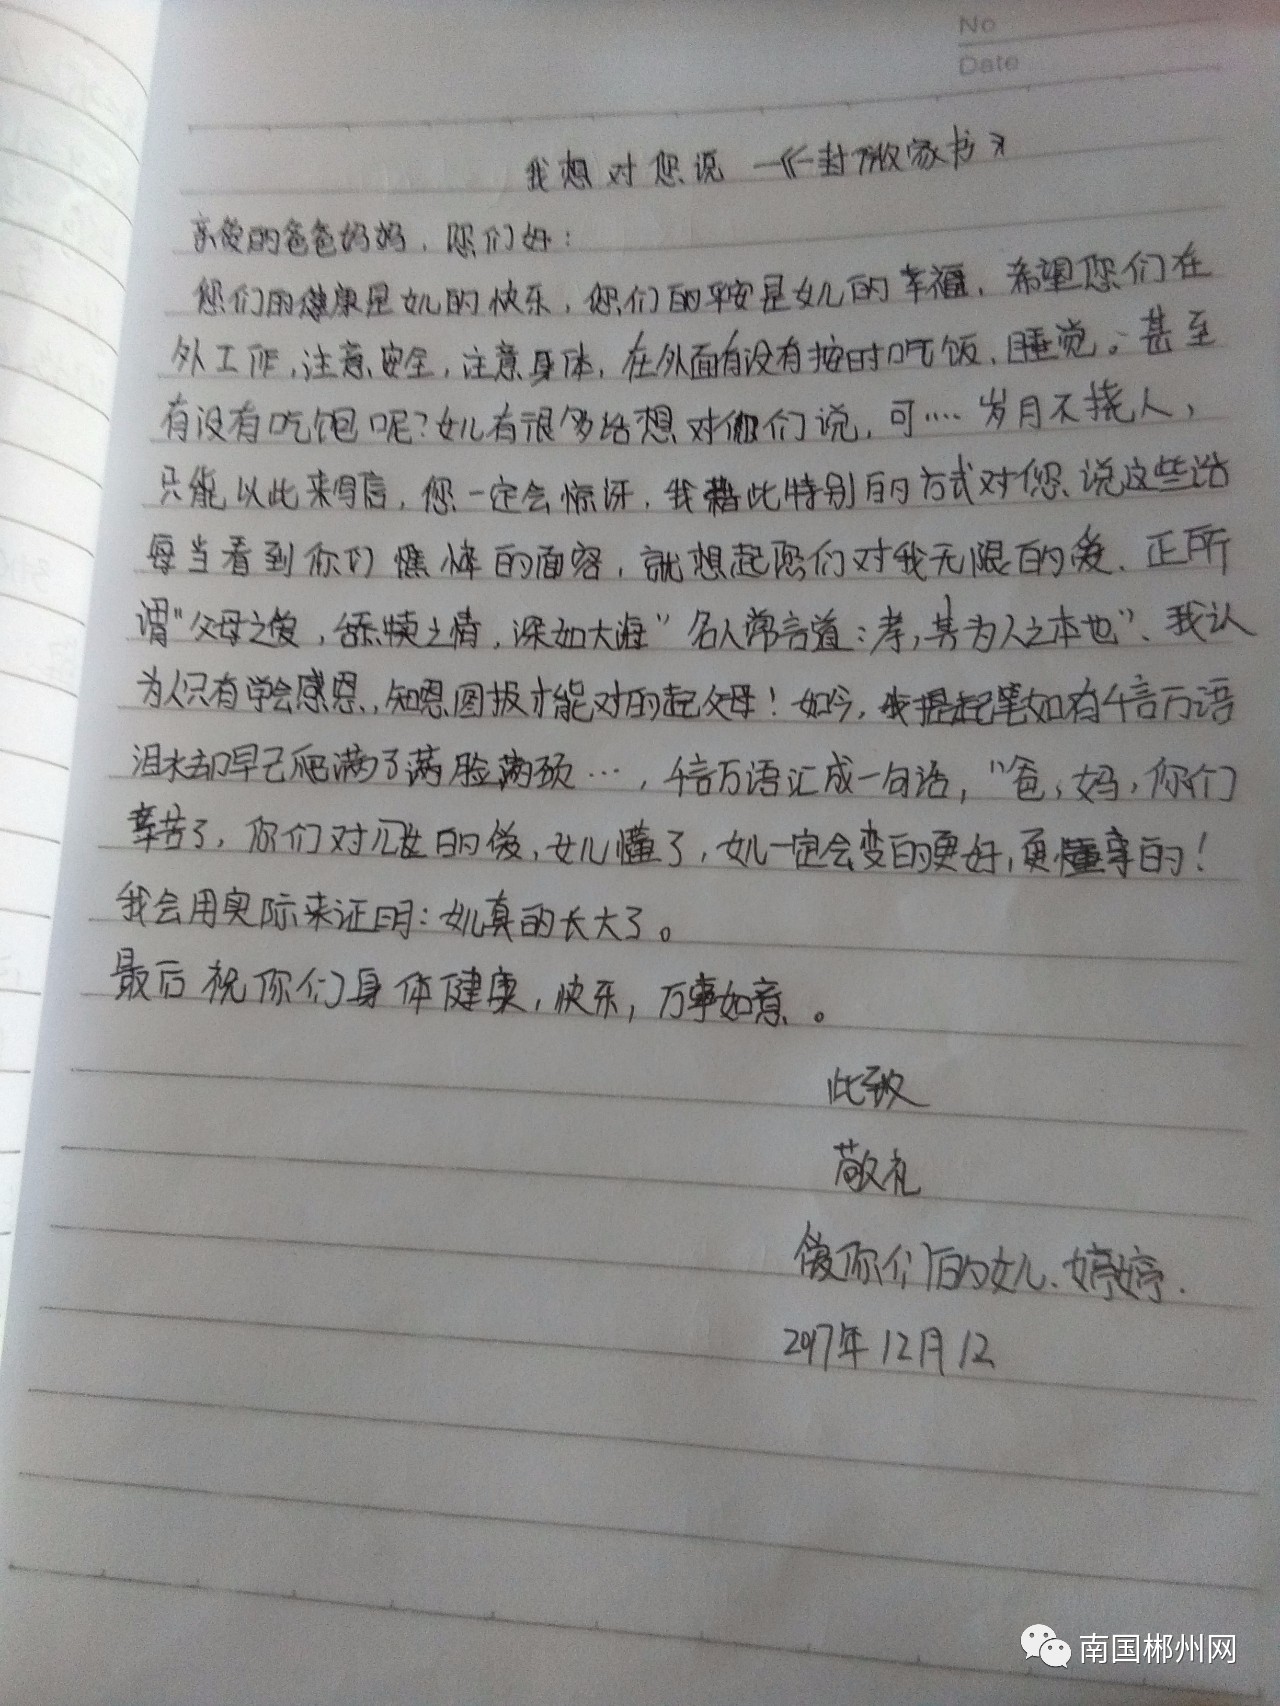 No
Date
我想对您说 —《一封微家书》
亲爱的爸爸妈妈，您们好：
您们的健康是女儿的快乐，您们的平安是女儿的幸福、希望您们在
外工作，注意安全，注意身体，在外面有没有按时吃饭、睡觉。甚至
有没有吃饱呢？女儿有很多话想对你们说，可…… 岁月不挠人，
只能以此来写信，您一定会惊讶，我藉此特别的方式对您说这些话
每当看到你们憔悴的面容，就想起您们对我无限的爱、正所
谓“父母之爱，舔犊之情，深如大海”名人常言道：孝，其为人之本也”、我认
为人只有学会感恩，知恩图报才能对的起父母！如今，我提起笔如有千言万语
泪水却早已爬满了满脸满颊…，千言万语汇成一句话，“爸，妈，你们
辛苦了，你们对我的爱，女儿懂了，女儿一定会变的更好，更懂事的！
我会用实际来证明：女儿真的长大了。
最后祝你们身体健康，快乐，万事如意。
此致
敬礼
爱你们的女儿、婷婷．
2017年12月12
南国郴州网